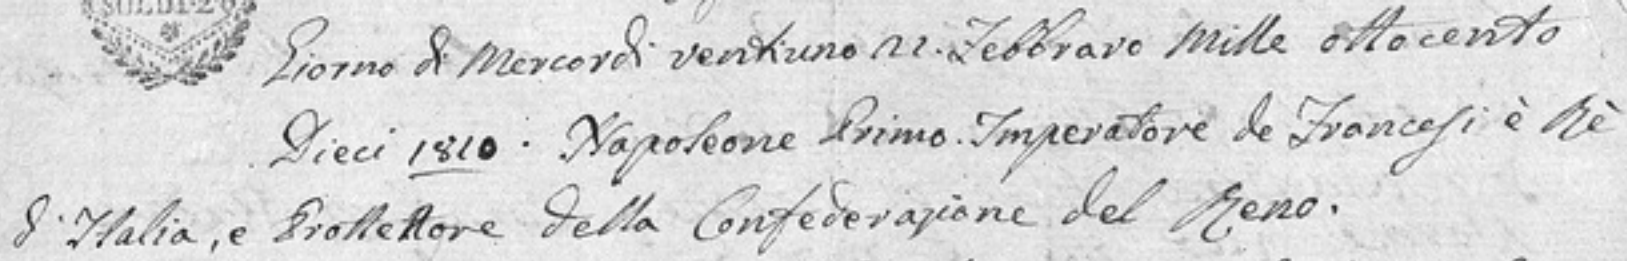 SOLDI 20
Giorno di Mercordi ventiuno 21. Febbraro Mille ottocento
Dieci 1810. Napoleone Primo. Imperatore de Francesi è Rè
d'Italia, e Prottettore della Confederazione del Reno.